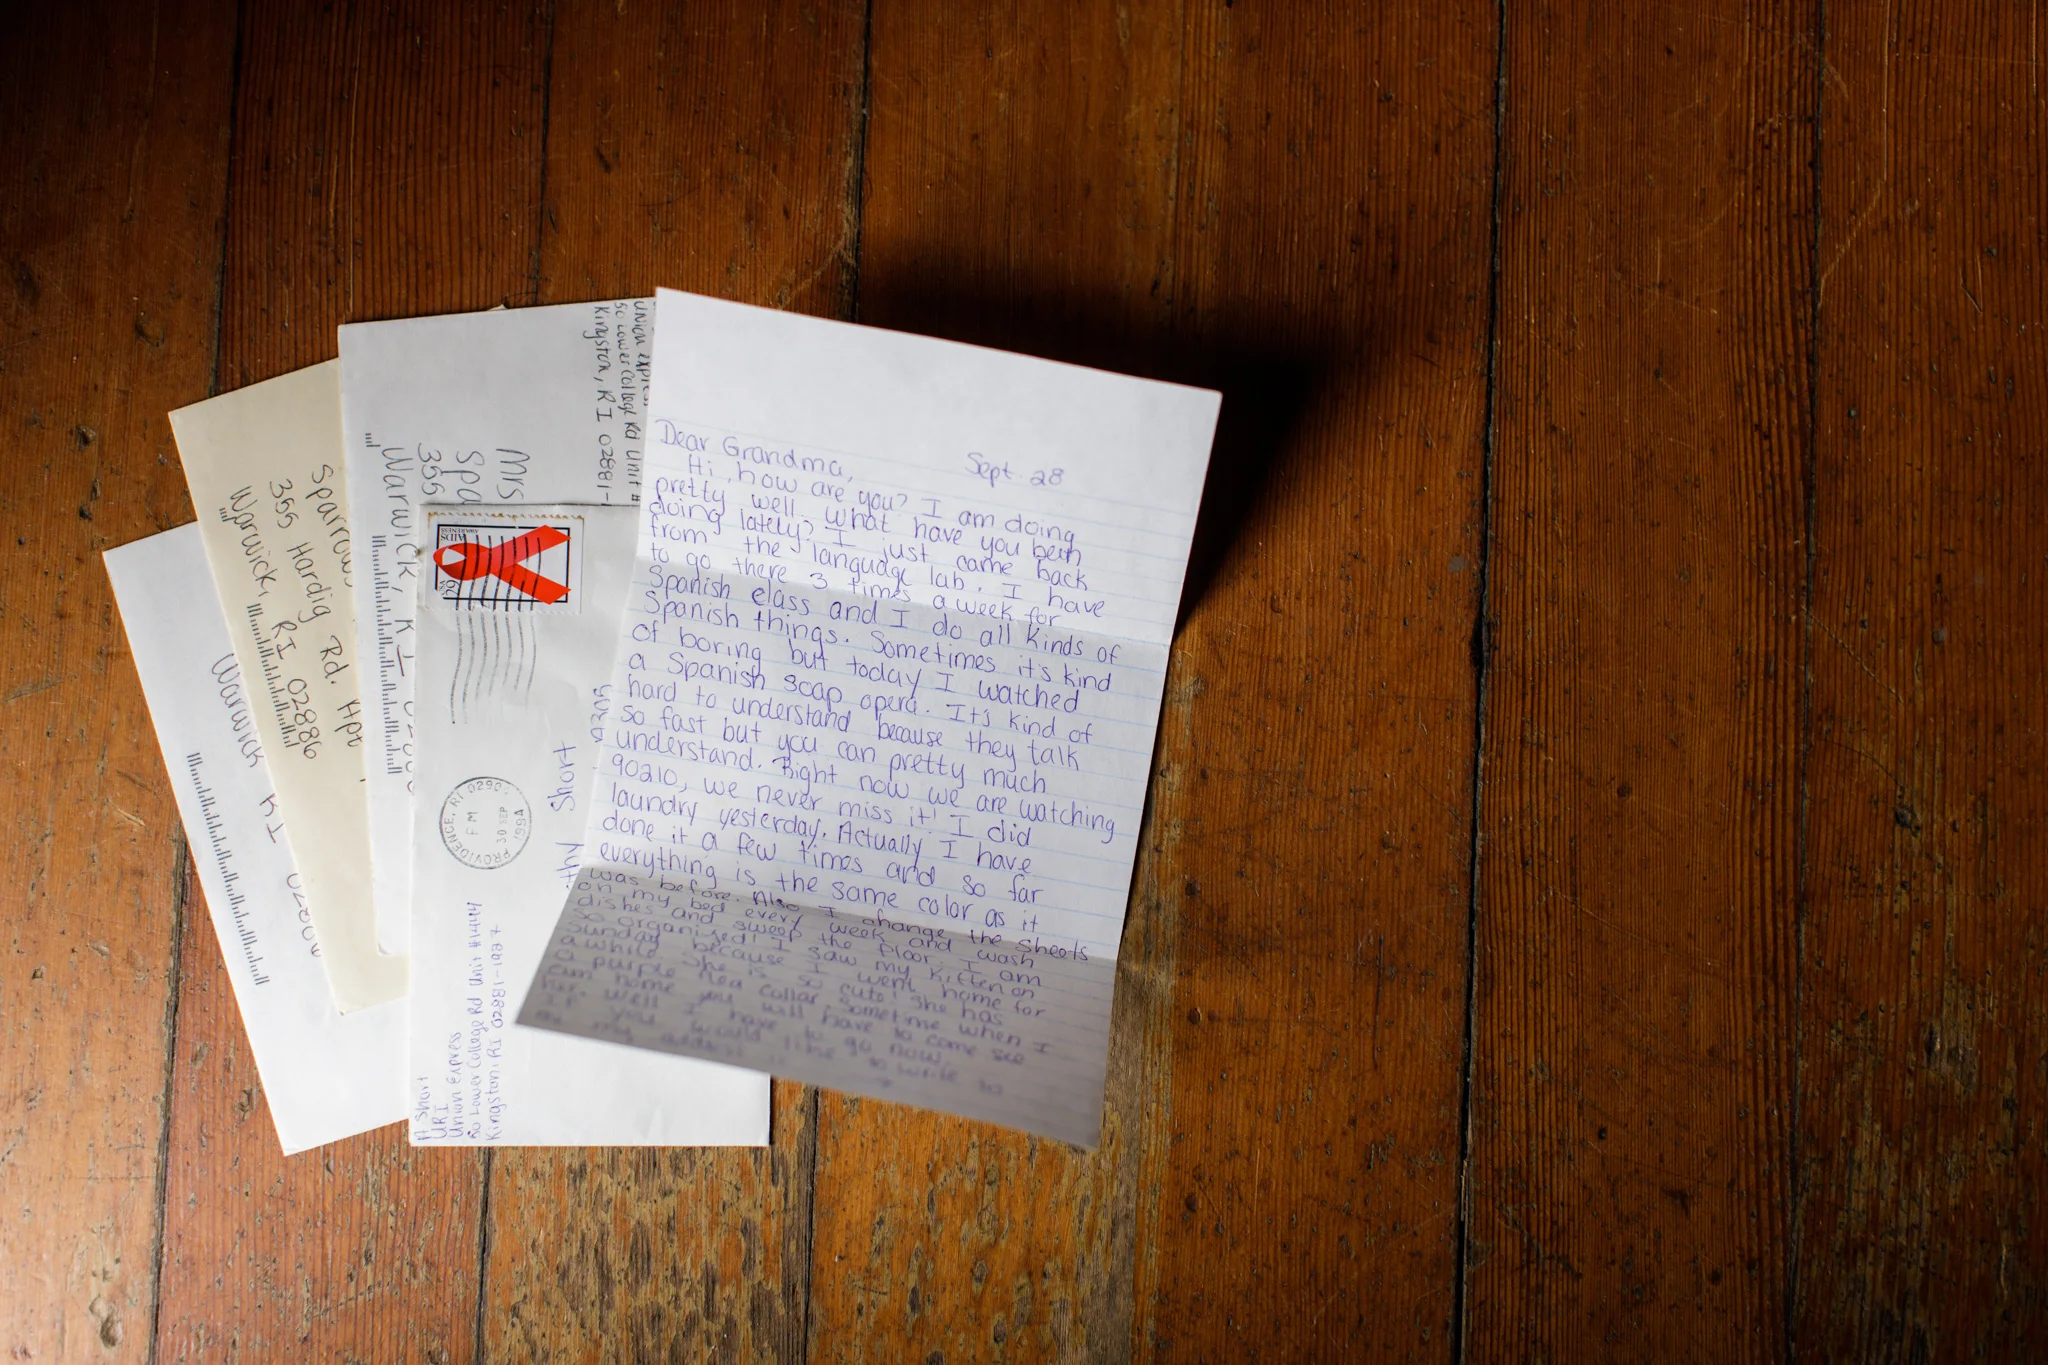 Dear Grandma,
Sept. 28
Hi, how are you? I am doing
pretty well. What have you been
doing lately? I just came back
from the language lab. I have
to go there 3 times a week for
Spanish class and I do all kinds of
Spanish things. Sometimes it's kind
of boring but today I watched
a Spanish soap opera. It's kind of
hard to understand because they talk
so fast but you can pretty much
understand. Right now we are watching
90210, we never miss it! I did
laundry yesterday. Actually I have
done it a few times and so far
everything is the same color as it
was before. Also I change the sheets
on my bed every week and wash
dishes and sweep the floor. I am
so organized! I saw my kitten on
Sunday because I went home for
awhile. She is so cute! She has
a purple flea collar. Sometime when I
am home you will have to come see
her. Well I have to go now.
If you would like to write to
me my address is
AIDS
AWARENESS
29
USA
PROVIDENCE, RI
PM
30 SEP
1994
Short
A Short
URI
Union Express
50 Lower College Rd Unit #1444
Kingston, RI 02881-1927
Union Express
50 Lower College Rd Unit #
Kingston, RI 02881-
Mrs
Spa
355
Warwick, RI
Sparrows
355 Hardig Rd. Apt
Warwick, RI 02886
Warwick RI